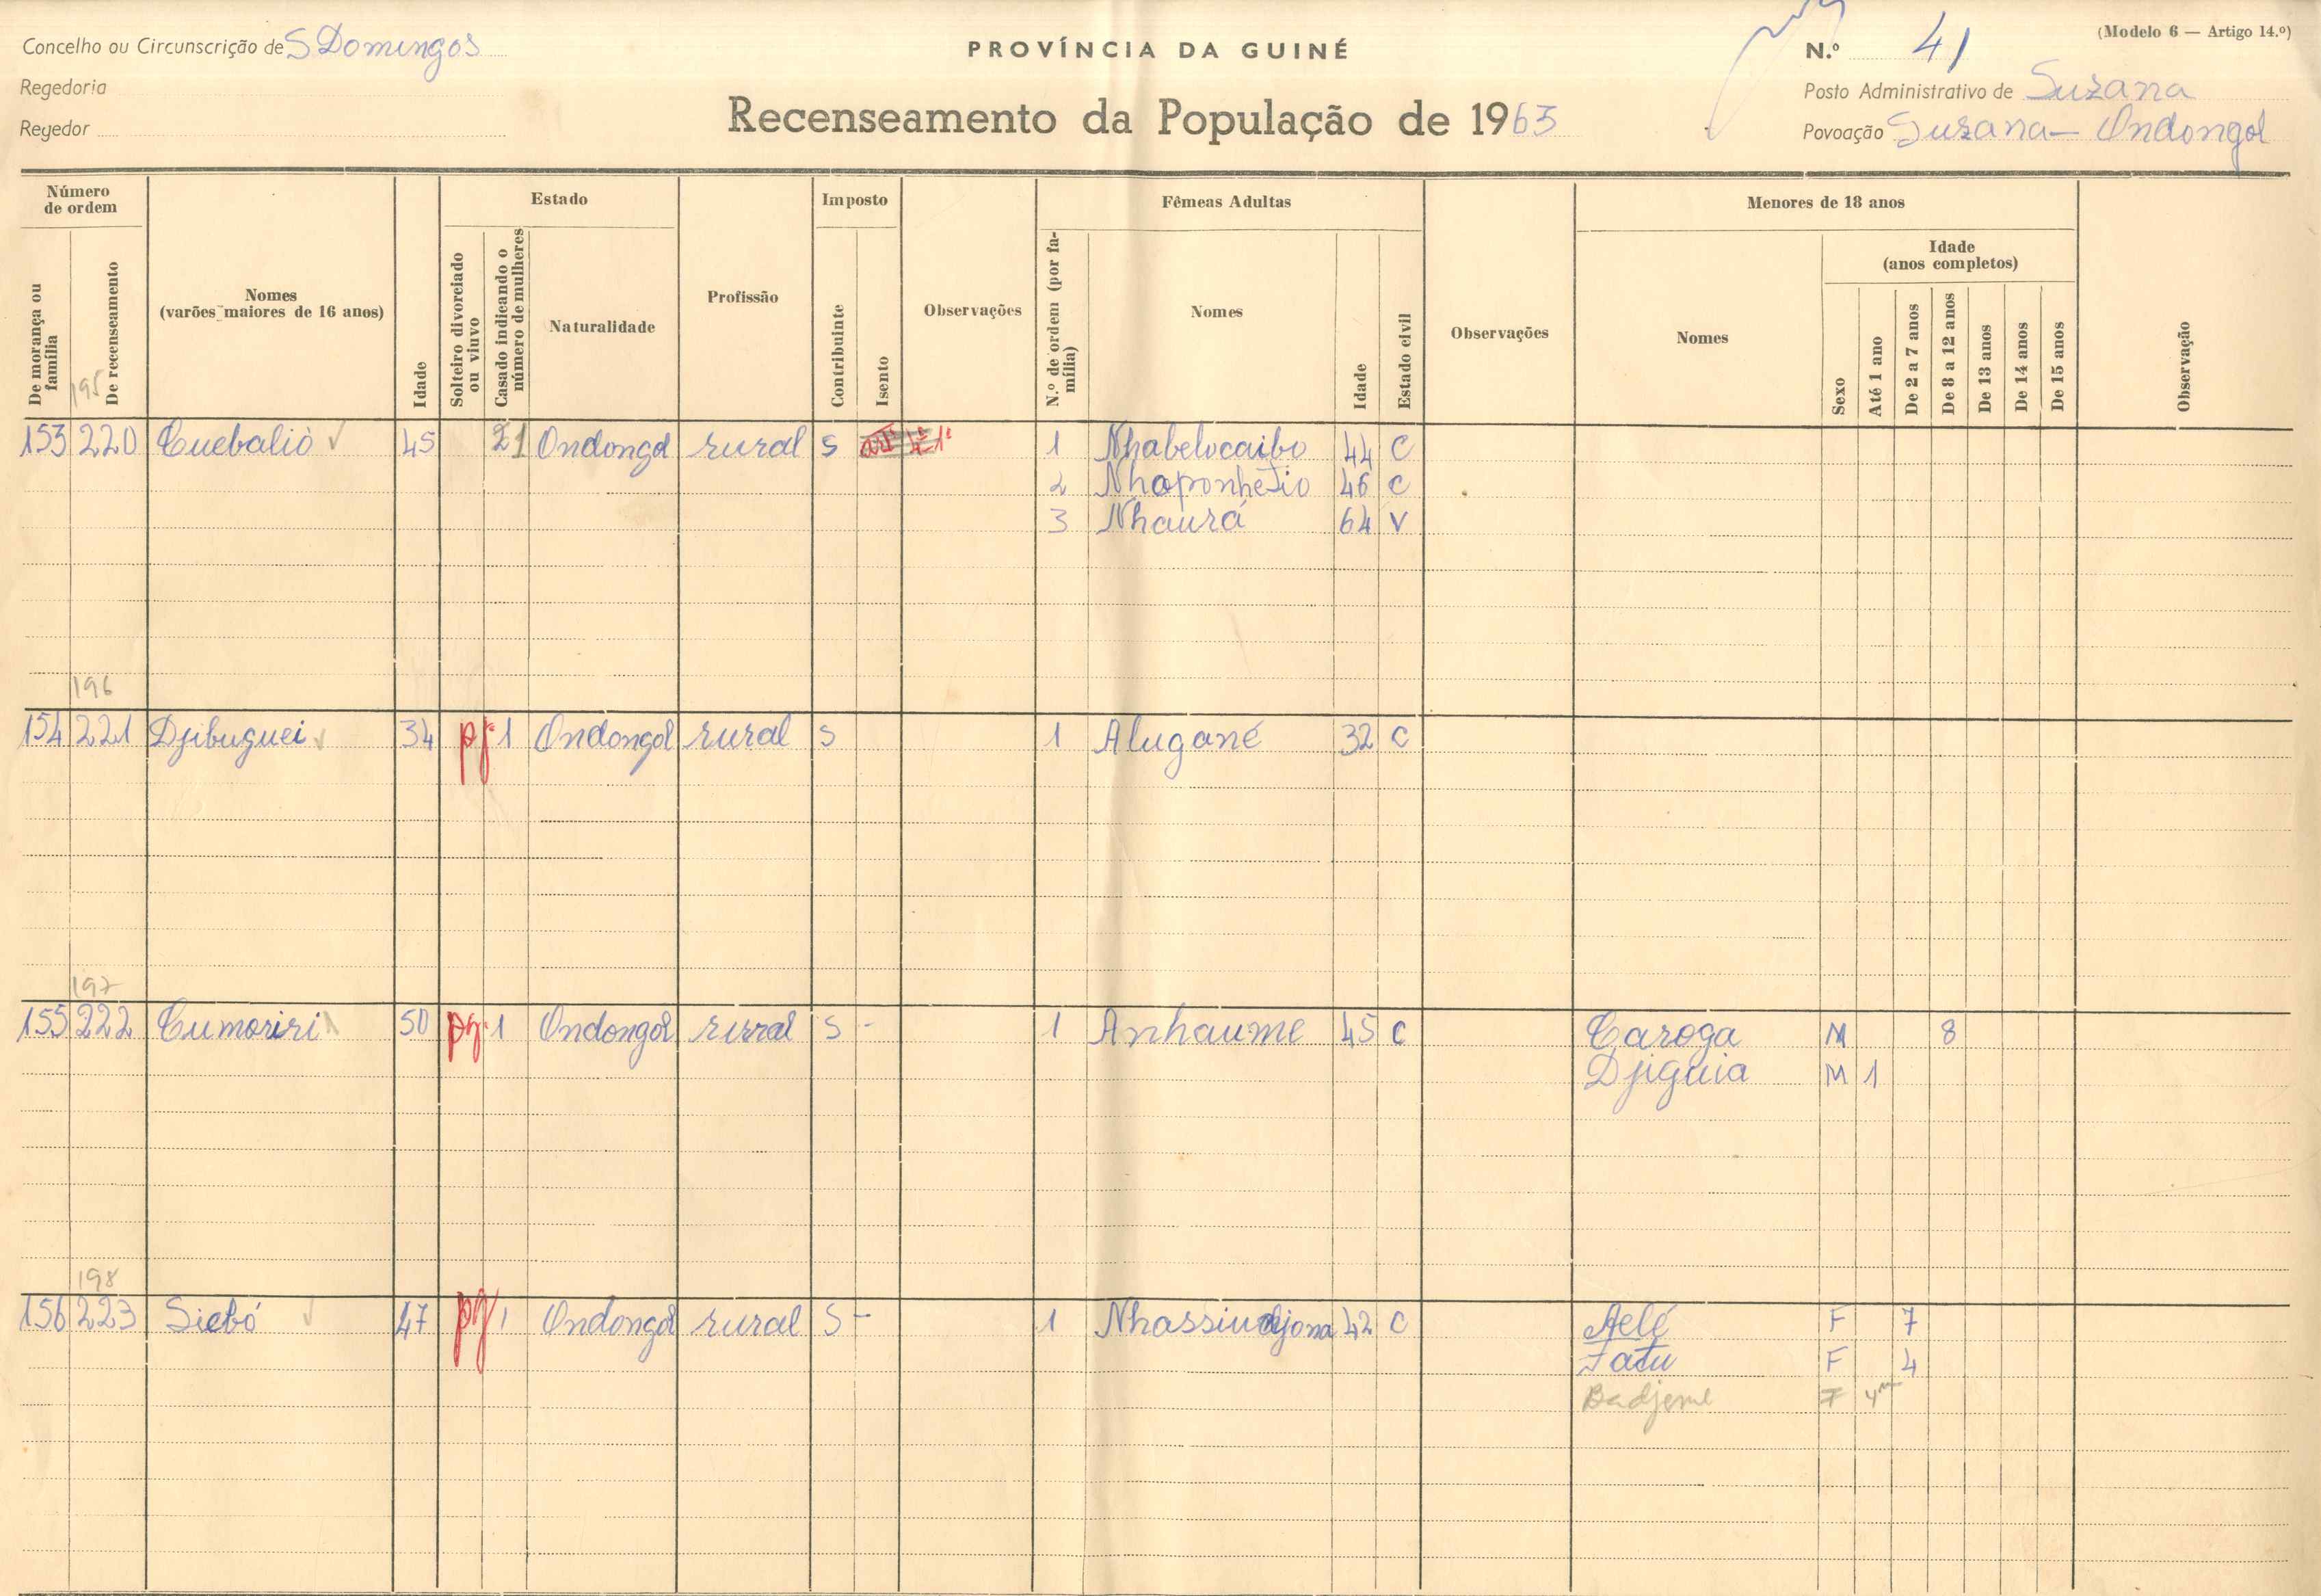 Concelho ou Circunscrição de S Domingos
PROVÍNCIA DA GUINÉ
N.º 41
(Modelo 6 — Artigo 14.º)
Regedoria
Posto Administrativo de Suzana
Regedor
Recenseamento da População de 1963
Povoação Suzana - Ondongol
Número de ordem
Estado
Imposto
Fêmeas Adultas
Menores de 18 anos
De morança ou família
De recenseamento
Nomes (varões maiores de 16 anos)
Idade
Solteiro divorciado ou viuvo
Casado indicando o número de mulheres
Naturalidade
Profissão
Contribuinte
Isento
Observações
N.º de ordem (por família)
Nomes
Idade
Estado civil
Observações
Nomes
Sexo
Idade (anos completos)
Até 1 ano
De 2 a 7 anos
De 8 a 12 anos
De 13 anos
De 14 anos
De 15 anos
Observação
195
153 220 Cuebalió 45 21 Ondongol rural S 1 Nhabelocaibo 44 C
2 Nhaponhetio 46 C
3 Nhaurá 64 V
196
154 221 Djibuguei 34 pg 1 Ondongol rural S 1 Alugané 32 C
197
155 222 Cumoriri 50 pg 1 Ondongol rural S - 1 Anhaume 45 C Caroga M 8
Djiguia M 1
198
156 223 Siebó 47 pg 1 Ondongol rural S - 1 Nhassiudjona 42 C Aelé F 7
Fatu F 4
Badjeme F 4m